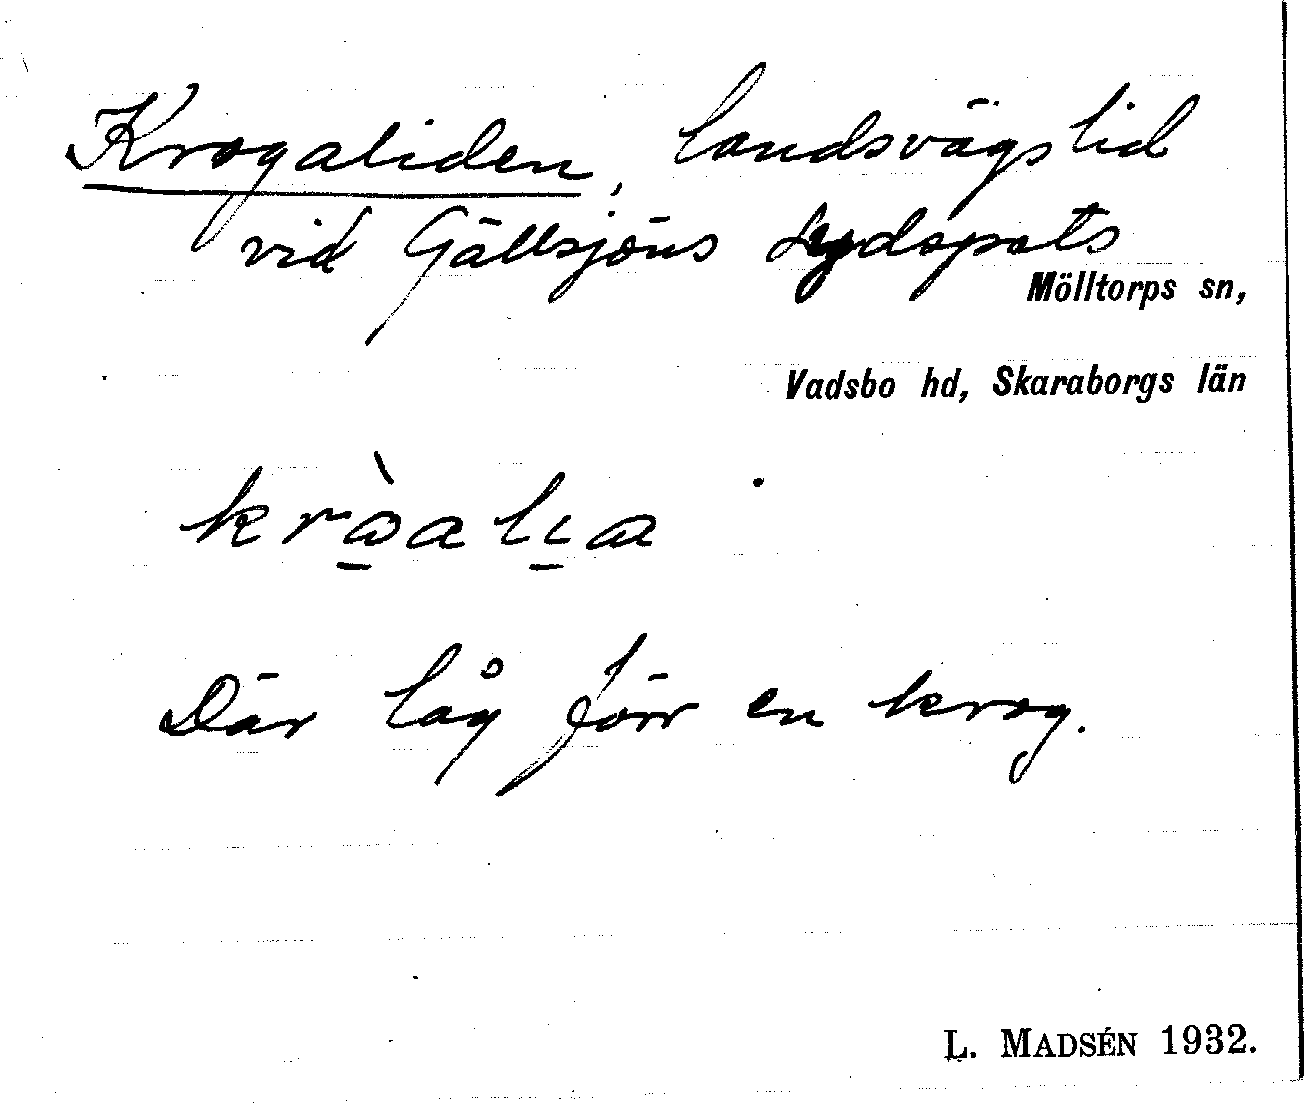 Krogaliden, landsvägslid
vid Gällsjöns sydspets
Mölltorps sn,
Vadsbo hd, Skaraborgs län
Där låg förr en krog.
L. MADSÉN 1932.